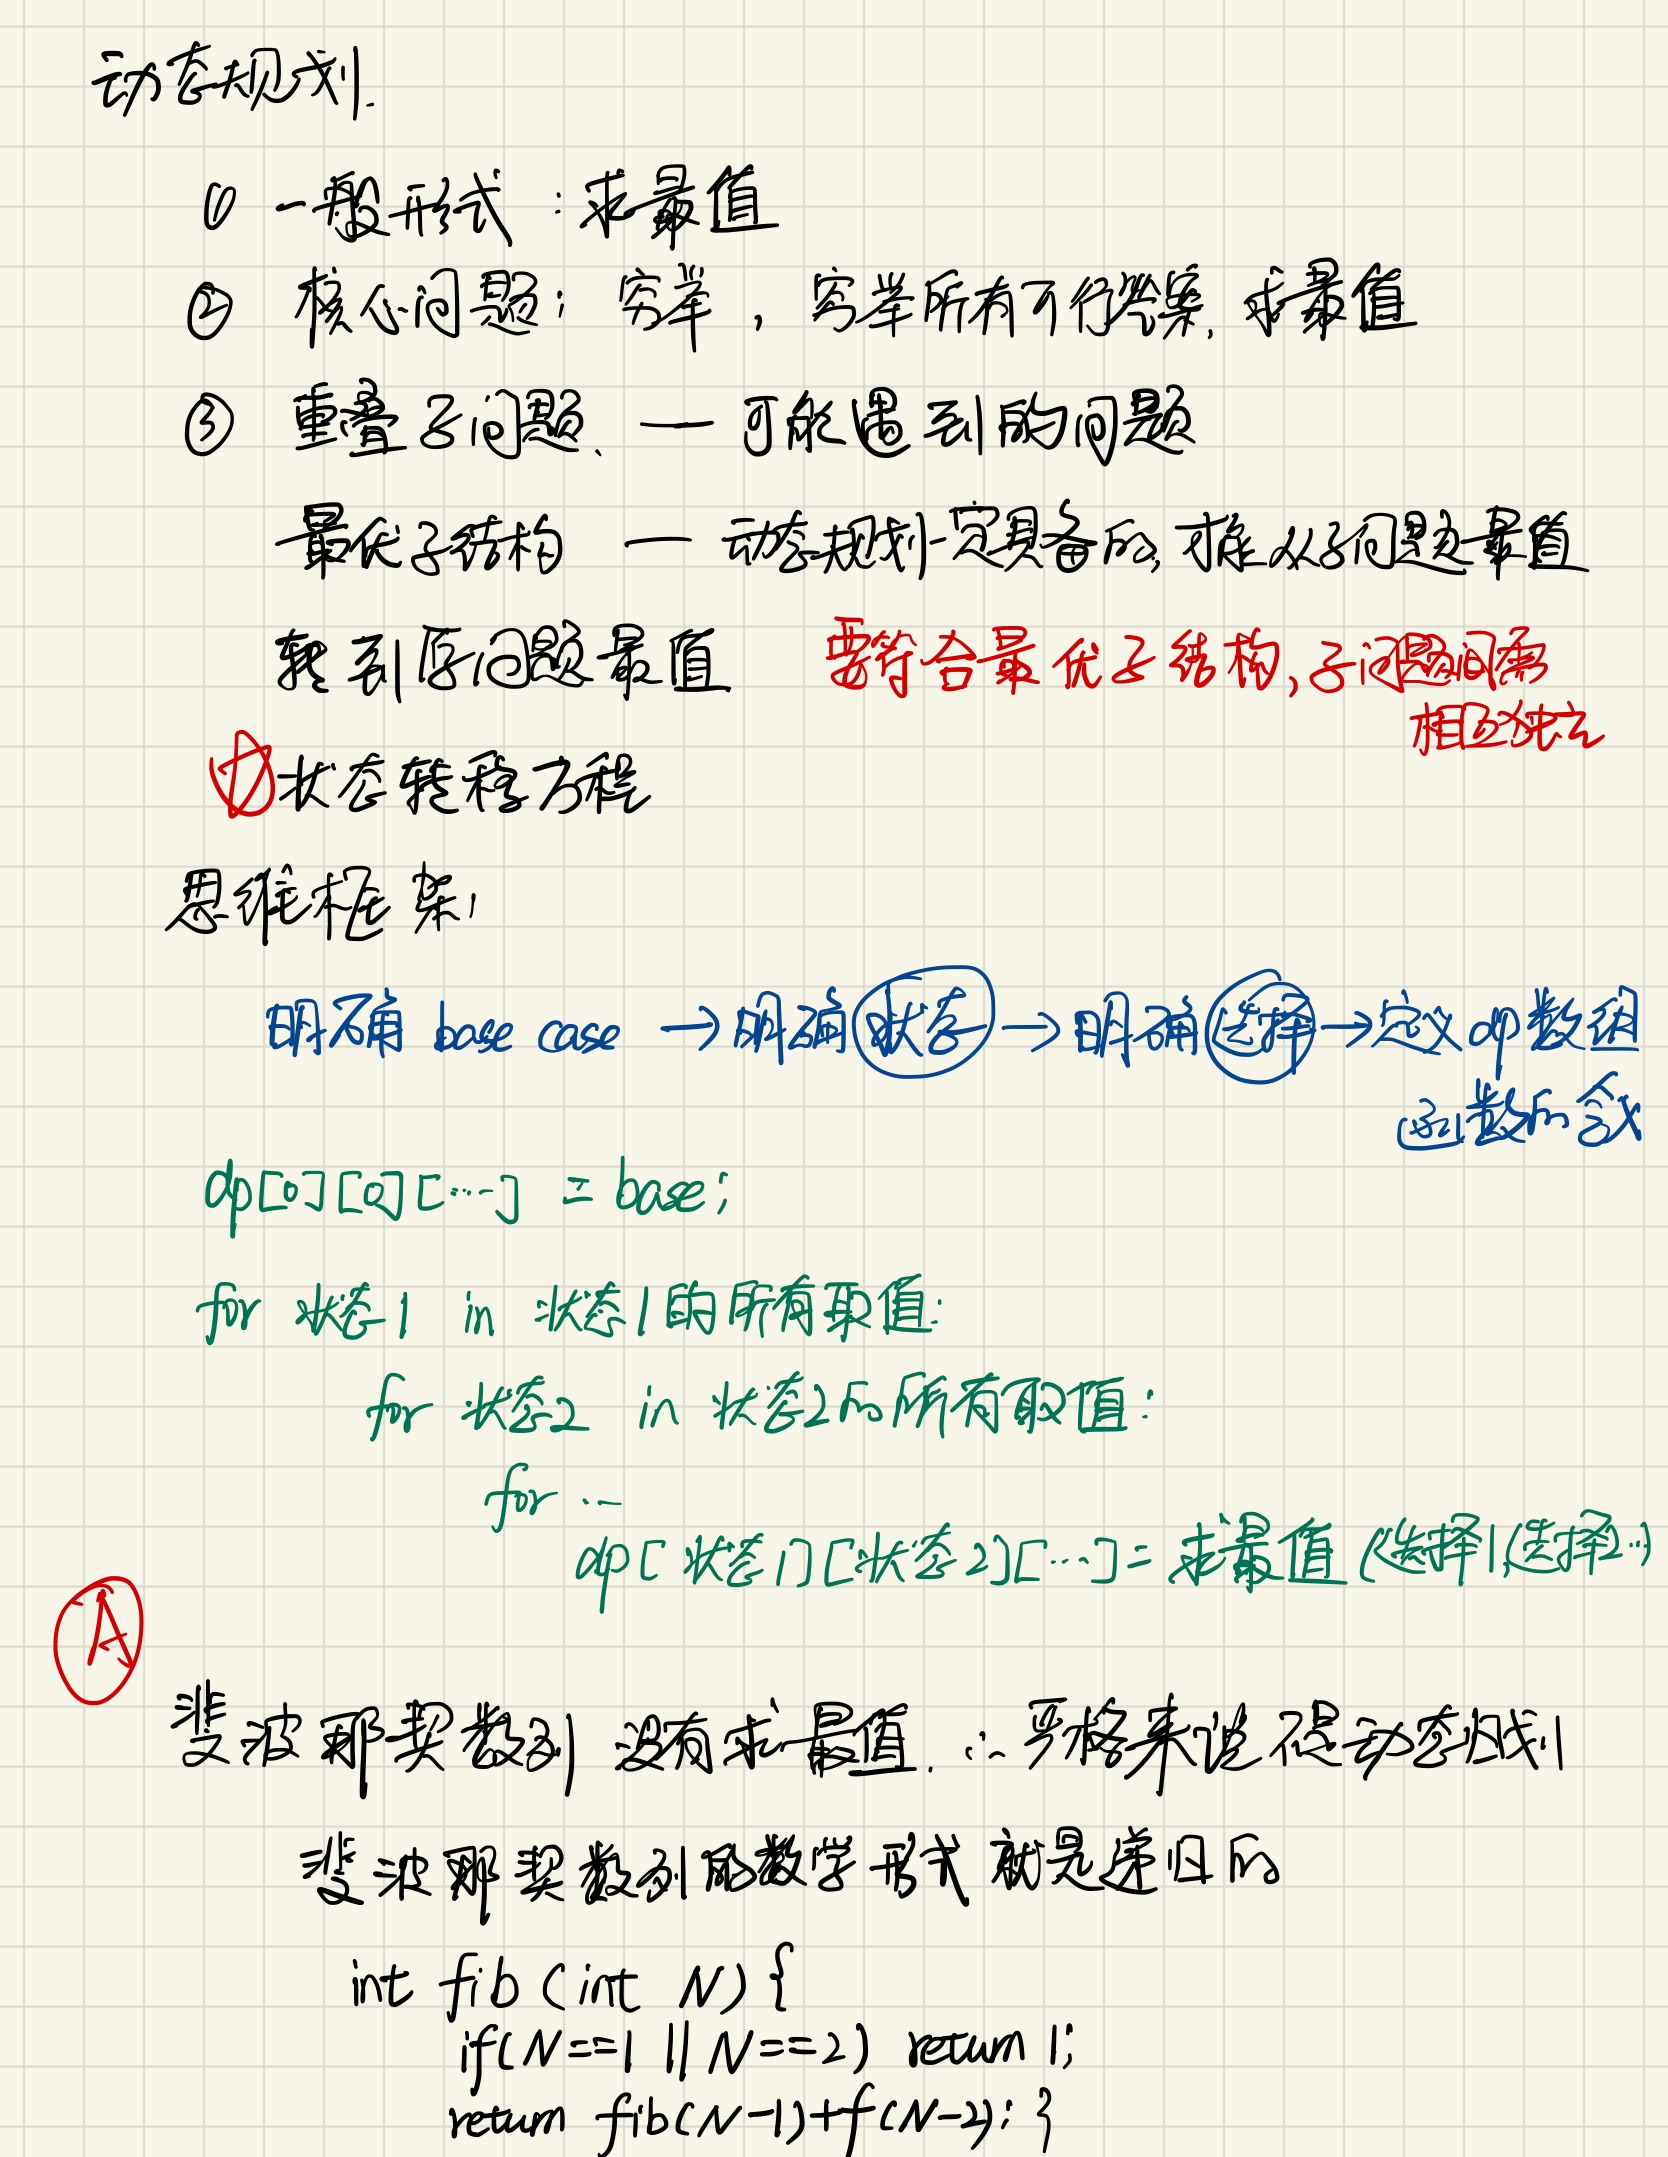 动态规划.
① 一般形式:求最值
② 核心问题: 穷举,穷举所有可行答案,求最值
③ 重叠子问题、—— 可能遇到的问题
最优子结构 —— 动态规划一定具备的,才能从子问题最值
转到原问题最值 要符合最优子结构,子问题间需
相互独立
状态转移方程
思维框架:
明确 base case → 明确状态 → 明确选择 → 定义dp数组
函数的含义
dp[0][0][...] = base;
for 状态1 in 状态1的所有取值:
for 状态2 in 状态2的所有取值:
for ...
dp[状态1][状态2][...] = 求最值(选择1,选择2...)
A
斐波那契数列 没有求最值. ∴ 严格来说不是动态规划
斐波那契数列的数学形式就是递归的
int fib (int N) {
if(N==1 || N==2) return 1;
return fib(N-1)+f(N-2); }